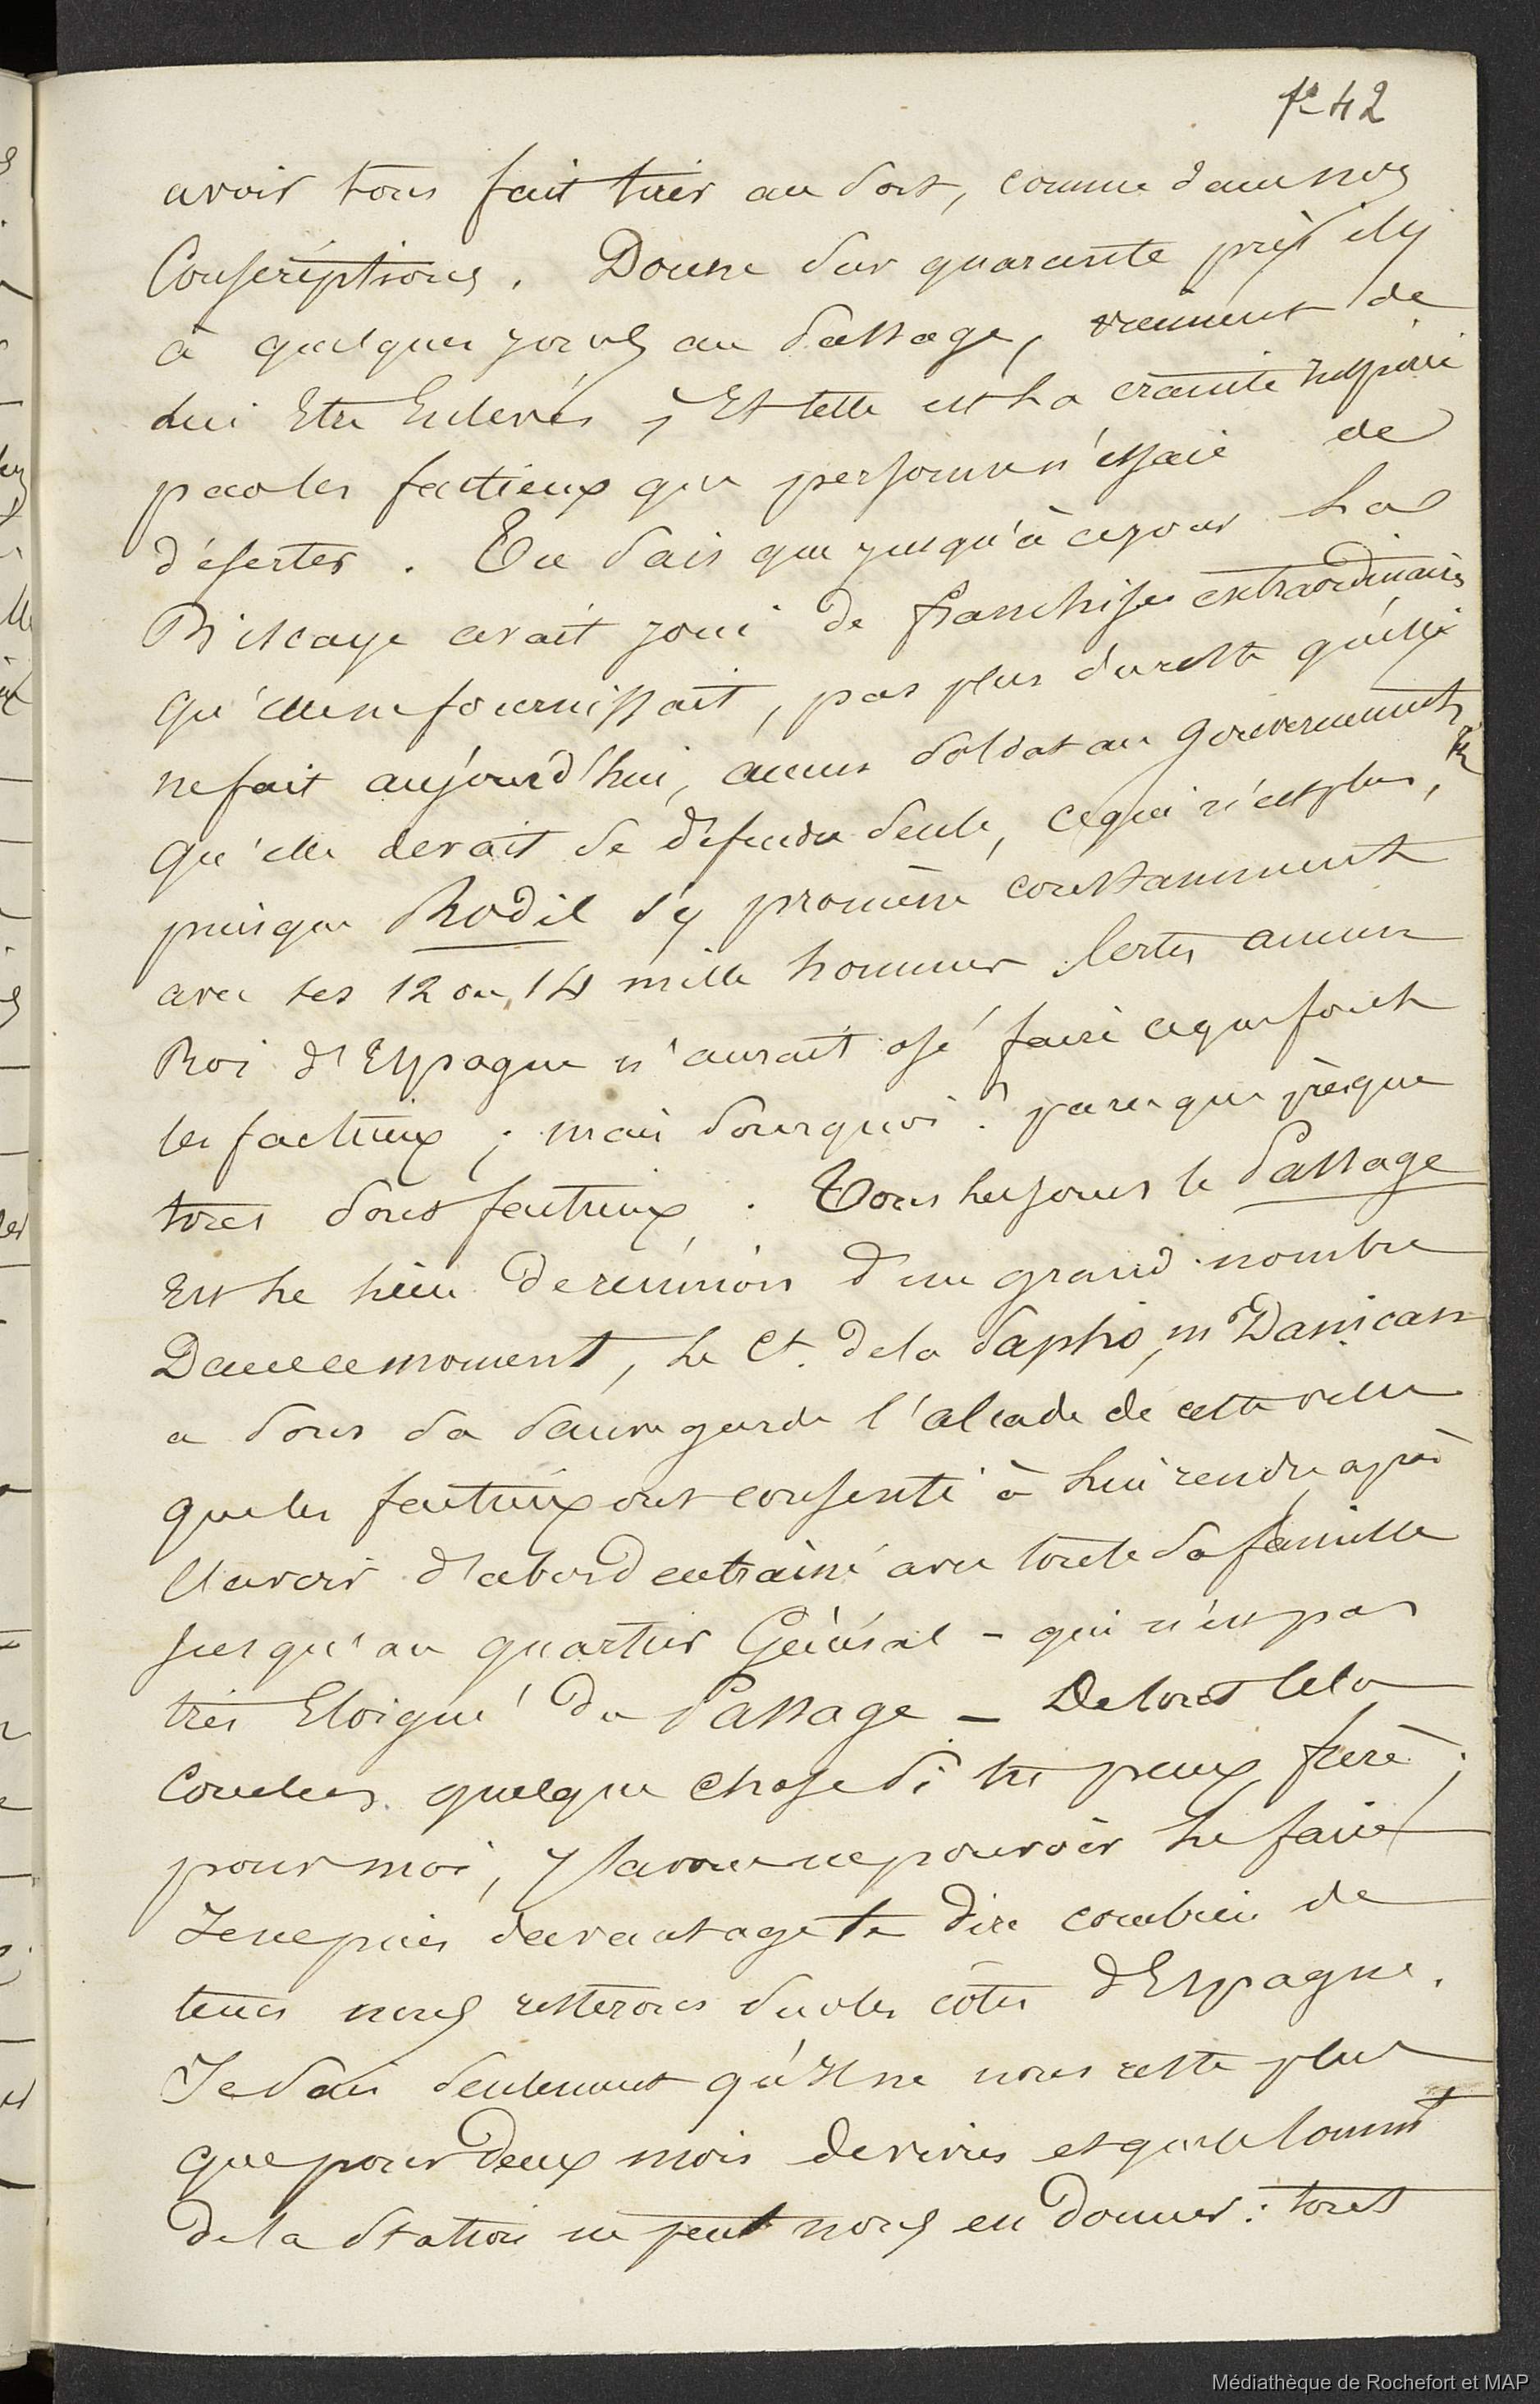 fo 42
avoir tous fait tirer au sort, comme dans nos
Conscriptions. Douze sur quarante pris il y
a quelques jours au Passage, viennent de
lui être Enlevés, Et telle est la crainte inspirée
par les factieux que personne n'essaie de
déserter. Tu sais que jusqu'à ce jour la
Biscaye avait joui de franchises extraordinaires
qu'elle ne fournissait, pas plus du reste qu'elle
ne fait aujourd'hui, aucun soldat au gouvernement, &
qu'elle devait se défendre seule, ce qui n'est plus,
puisque Rodil s'y promène constamment
avec ses 12 ou 14 mille hommes. Certes aucun
Roi d'Espagne n'aurait osé faire ce que font
les factieux ; mais pourquoi ? parce que presque
tous sont factieux. Tous les jours le Passage
est le lieu de réunion d'un grand nombre
Dans ce moment, le Ct. de la Sapho, m Danican
a sous sa sauvegarde l'alcade de cette ville
que les factieux ont consenti à lui rendre après
l'avoir d'abord entrainé avec toute sa famille
jusqu'au quartier Général - qui n'est pas
très Eloigné du Passage - De tout cela
Conclus quelque chose si tu peux faire ;
pour moi, j'avoue ne pouvoir le faire
Je ne puis davantage te dire combien de
tems nous resterons sur les côtes d'Espagne.
Je sais seulement qu'il ne nous reste plus
que pour deux mois de vivres et que le commt
de la station ne peut nous en donner : tout
Médiathèque de Rochefort et MAP